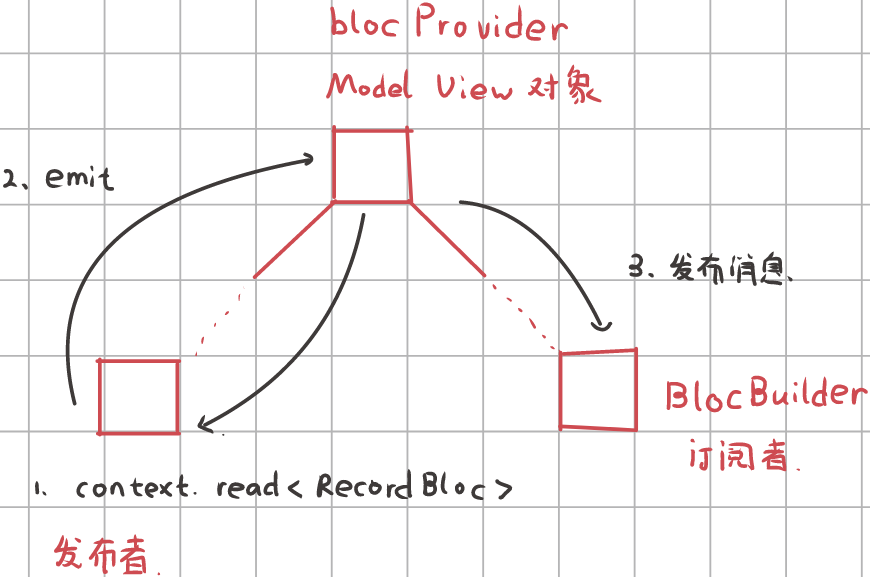 blocProvider
Model View 对象
2、emit
3. 发布消息.
BlocBuilder
订阅者.
1. context. read<RecordBloc>
发布者.